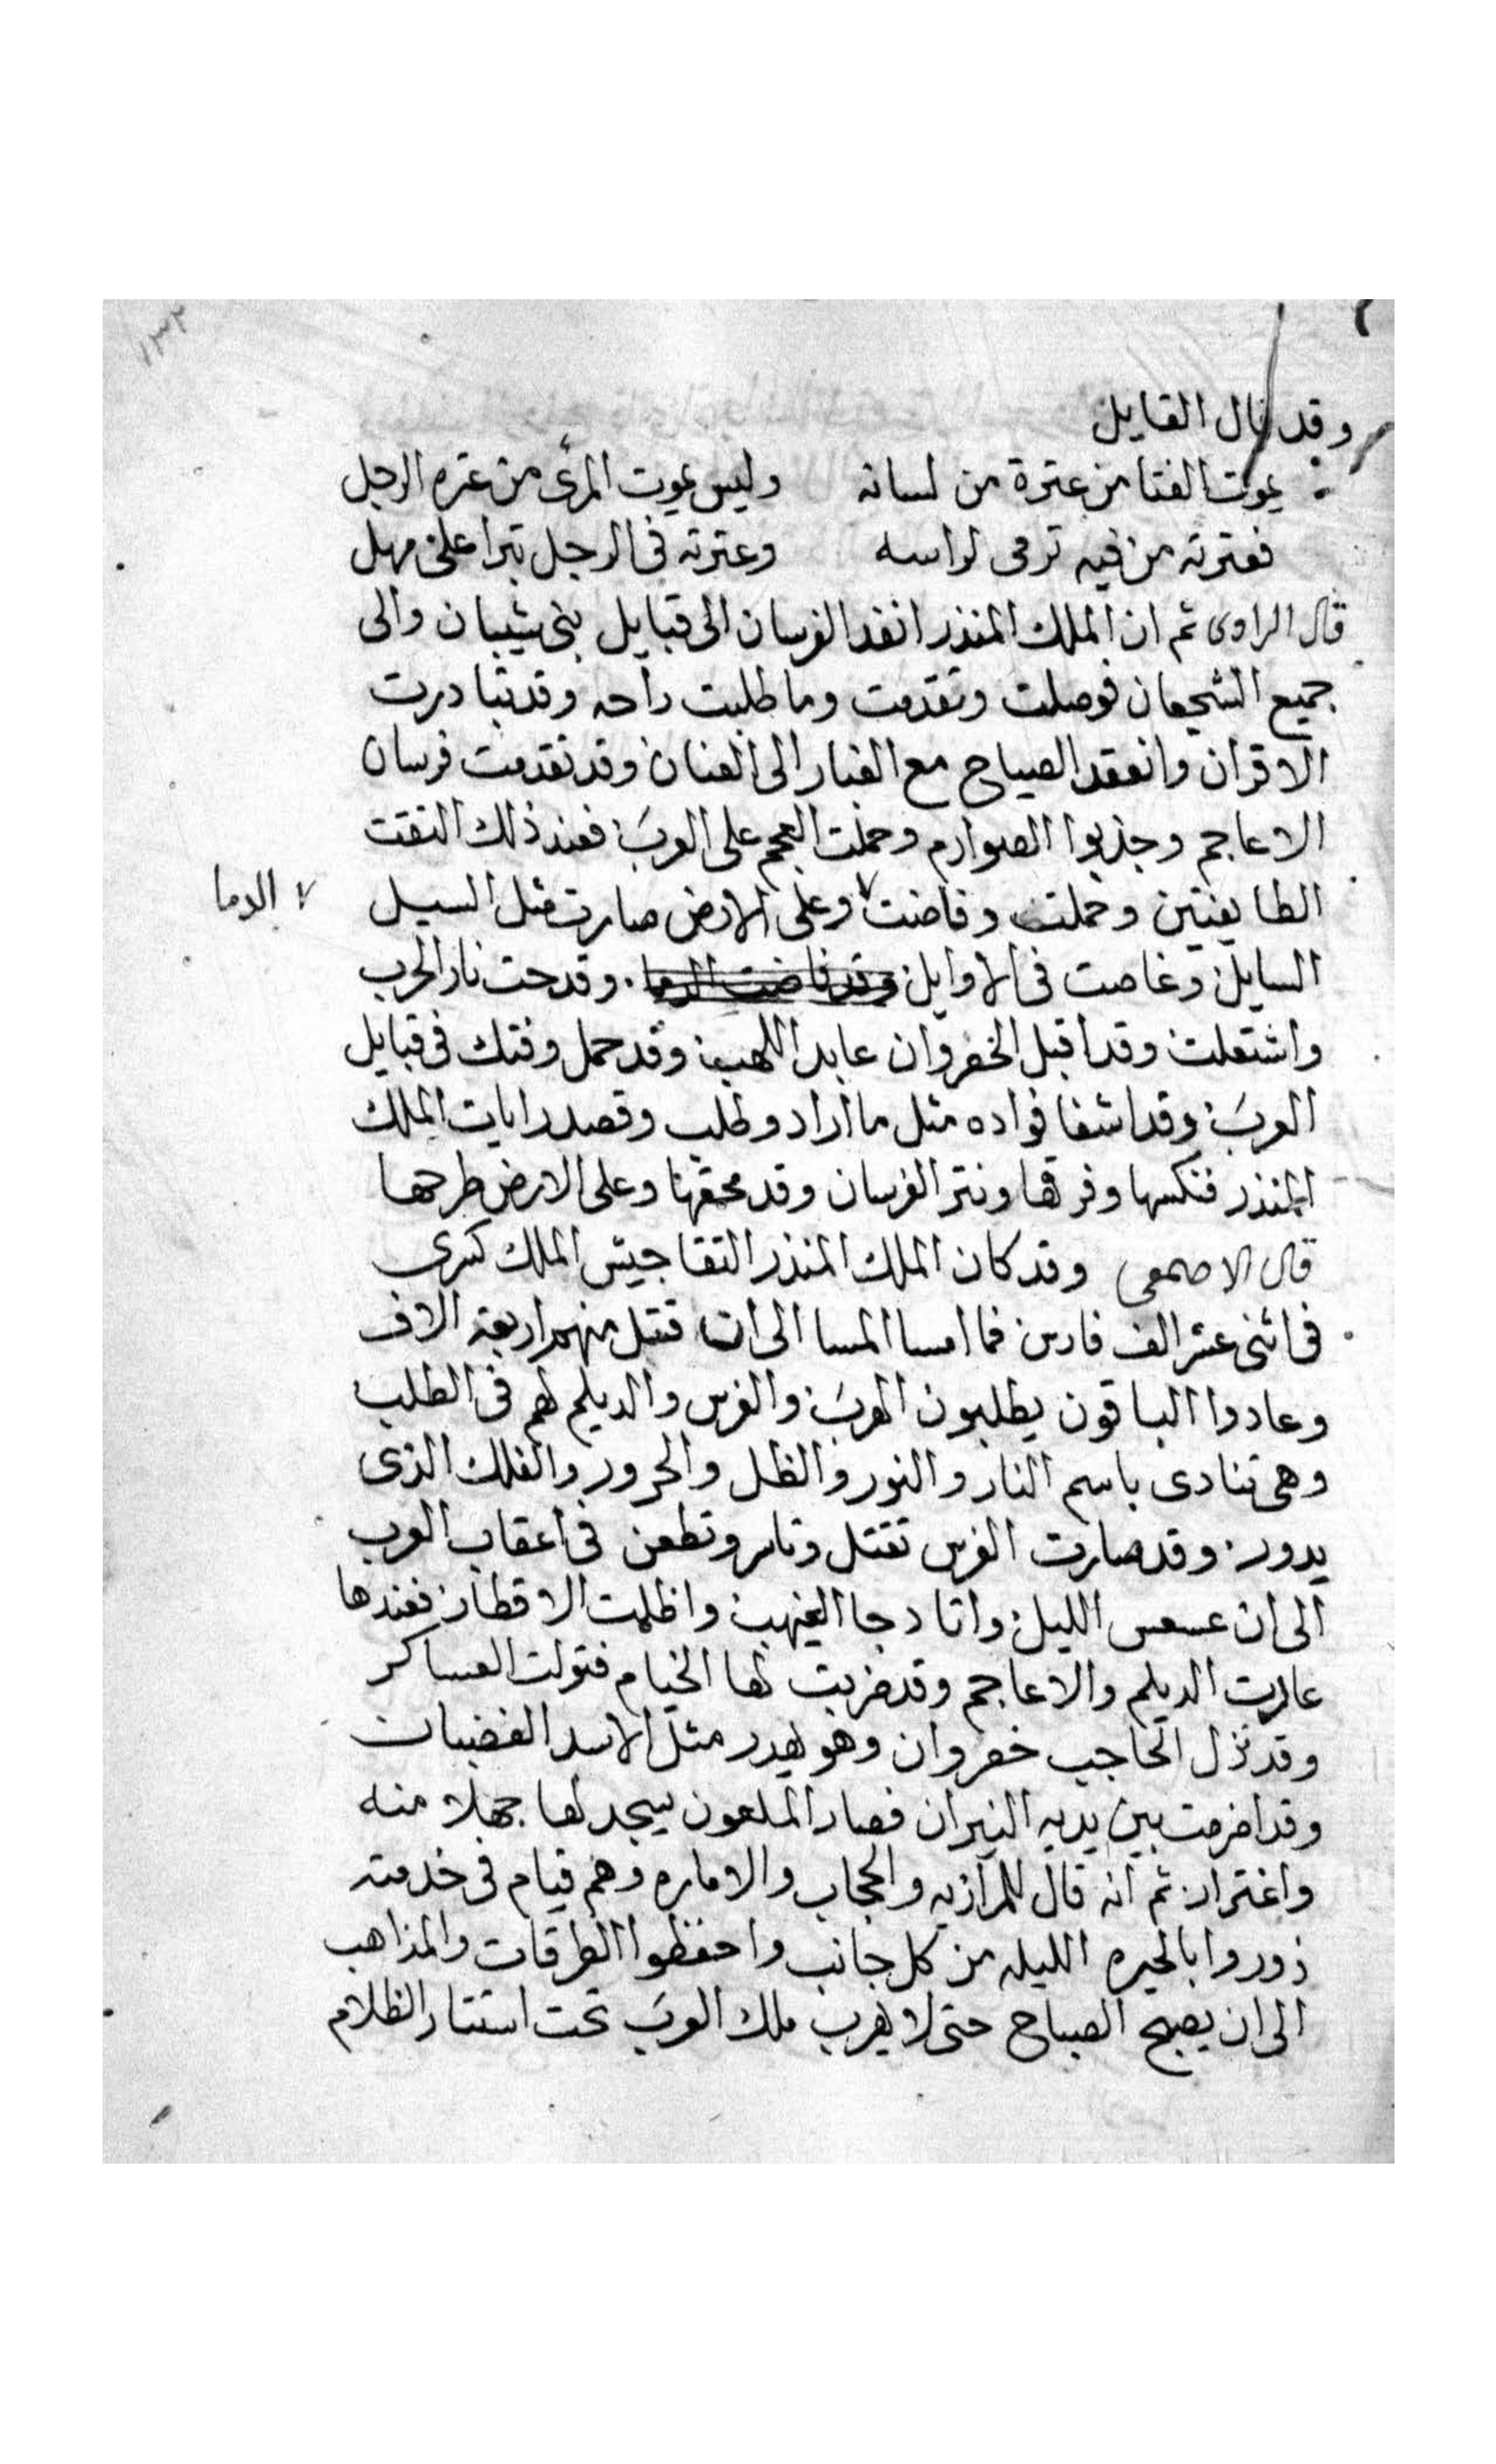 ١٣٢
وقد قال القايل
يموت الفتا من عترة من لسانه وليس يموت المرئ من عتره الرجل
فعترته من فيه ترمى لراسه وعترته فى الرجل تبرا على مهل
قال الراوى ثم ان الملك المنذر انفد الفرسان الى قبايل بنى شيبان والى
جميع الشجعان فوصلت وتقدمت وما طلبت راحه وقد تبادرت
الاقران وانعقد الصياح مع الغبار الى العنان وقد تقدمت فرسان
الاعاجم وجذبوا الصوارم وحملت العجم على العرب فعند ذلك التقت
الطايفتين وحملت وفاضت ٧ وعلى الارض صارت مثل السيل ٧ الدما
السايل وغاصت فى الاوايل وقد فاضت الدما. وقدحت نار الحرب
واشتعلت وقد اقبل الخفروان عابد اللهب وقد حمل وفتك فى قبايل
العرب وقد اشفا فواده مثل ما اراد وطلب وقصد رايات الملك
المنذر فنكسها وفرقها ونتر الفرسان وقد محقها وعلى الارض طرحها
قال الاصمعى وقد كان الملك المنذر التقا جيش الملك كسرى
فى اثنى عشر الف فارس فما امسا المسا الى ان قتل منهم اربعة الاف
وعادوا الباقون يطلبون الهرب والفرس والديلم لهم فى الطلب
وهى تنادى باسم النار والنور والظل والحرور والفلك الذى
يدور. وقد صارت الفرس تقتل وتاسر وتطعن فى اعقاب العرب
الى ان عسعس الليل واتا دجا الغيهب واظلمت الاقطار فعندها
عادت الديلم والاعاجم وقد ضربت لها الخيام فتولت العساكر
وقد نزل الحاجب خفروان وهو يهدر مثل الاسد الغضبان
وقد اضرمت بين يديه النيران فصار الملعون يسجد لها جهلا منه
واغترار ثم انه قال للمرازبه والحجاب والاماره وهم قيام فى خدمته
زوروا بالحيره الليله من كل جانب واحفظوا الطرقات والمذاهب
الى ان يصبح الصباح حتى لا يهرب ملك العرب تحت استتار الظلام